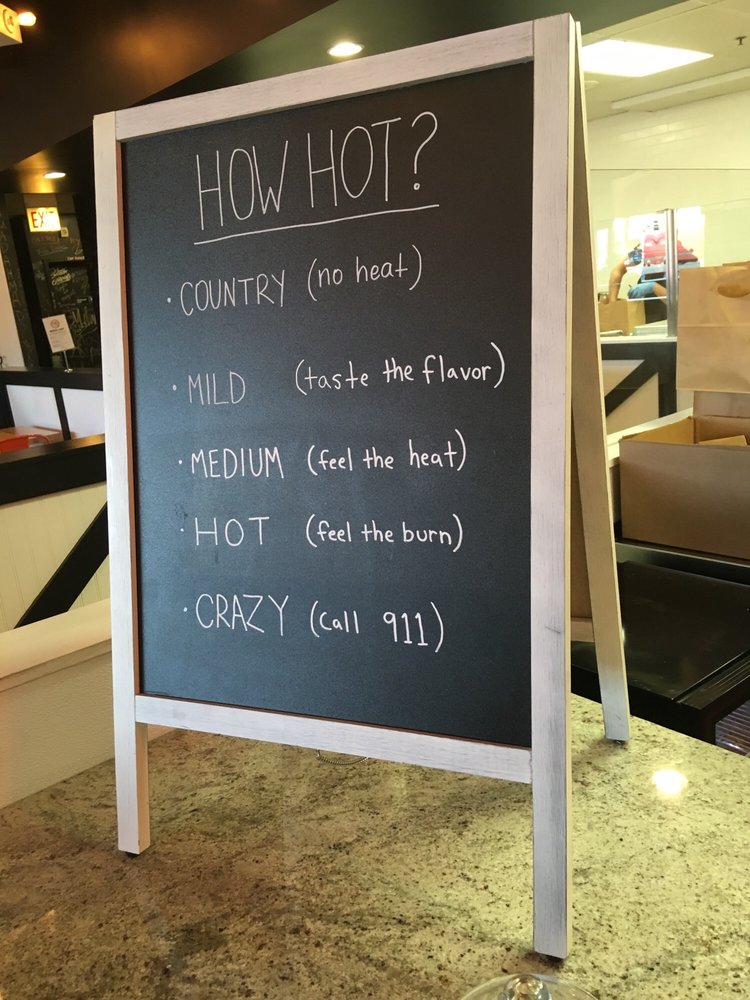 HOW HOT?
• COUNTRY (no heat)
• MILD (taste the flavor)
• MEDIUM (feel the heat)
• HOT (feel the burn)
• CRAZY (call 911)
EXIT